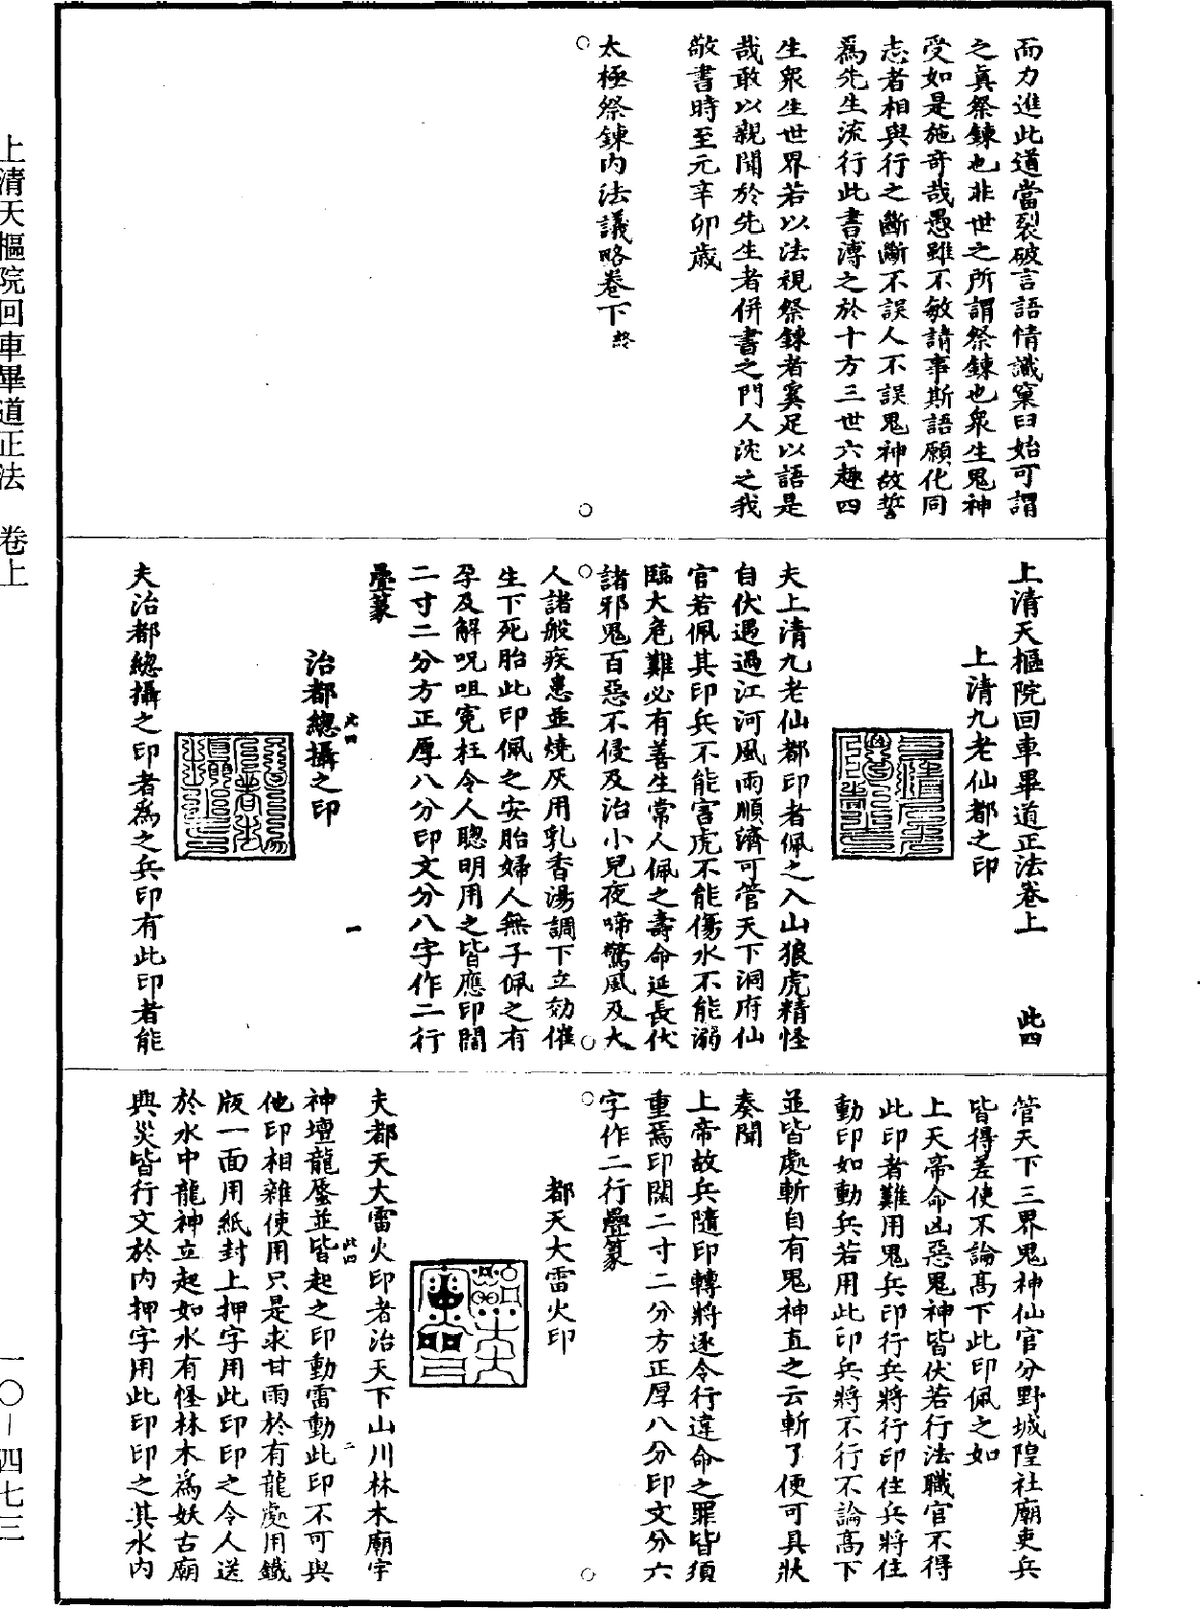 而力進此道當裂破言語情識窠臼始可謂
之真祭鍊也非世之所謂祭鍊也衆生鬼神
受如是施奇哉愚雖不敏請事斯語願化同
志者相與行之斷斷不誤人不誤鬼神故誓
爲先生流行此書溥之於十方三世六趣四
生衆生世界若以法視祭鍊者奚足以語是
哉敢以親聞於先生者併書之門人沈之我
敬書時至元辛卯歲
太極祭鍊內法議略卷下 終
上清天樞院回車畢道正法卷上 此四
上清九老仙都之印
夫上清九老仙都印者佩之入山狼虎精怪
自伏遇過江河風雨順濟可管天下洞府仙
官若佩其印兵不能害虎不能傷水不能溺
臨大危難必有善生常人佩之壽命延長伏
諸邪鬼百惡不侵及治小兒夜啼驚風及大
人諸般疾患並燒灰用乳香湯調下立効催
生下死胎此印佩之安胎婦人無子佩之有
孕及解呪咀冤枉令人聰明用之皆應印闊
二寸二分方正厚八分印文分八字作二行
疊篆
此四 一
治都總攝之印
夫治都總攝之印者爲之兵印有此印者能
管天下三界鬼神仙官分野城隍社廟吏兵
皆得差使不論高下此印佩之如
上天帝命凶惡鬼神皆伏若行法職官不得
此印者難用鬼兵印行兵將行印住兵將住
動印如動兵若用此印兵將不行不論高下
並皆處斬自有鬼神直之云斬了便可具狀
奏聞
上帝故兵隨印轉將逐令行違命之罪皆須
重焉印闊二寸二分方正厚八分印文分六
字作二行疊篆
都天大雷火印
夫都天大雷火印者治天下山川林木廟宇
神壇龍蜃並皆起之印動雷動此印不可與
此四 二
他印相雜使用只是求甘雨於有龍處用鐵
版一面用紙封上押字用此印印之令人送
於水中龍神立起如水有怪林木爲妖古廟
興災皆行文於內押字用此印印之其水內
上清天樞院回車畢道正法 卷上
一〇—四七三